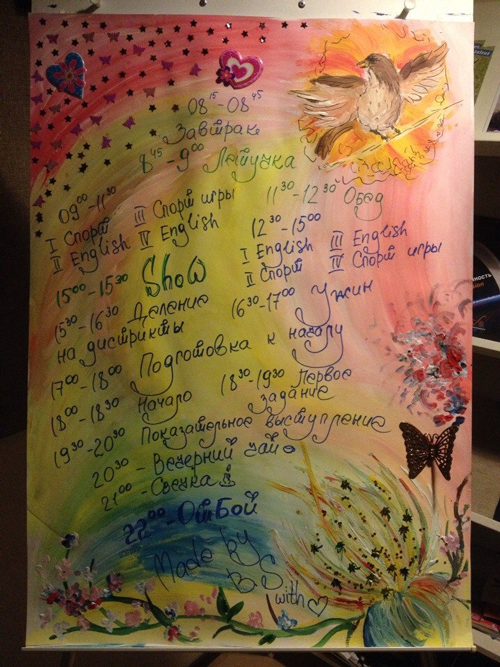 08¹⁵-08⁴⁵
Завтрак
8⁴⁵-9⁰⁰ Летучка
09⁰⁰-11³⁰
I Спорт III Спорт игры
II English IV English
11³⁰-12³⁰ Обед
12³⁰-15⁰⁰
I English III English
II Спорт IV Спорт игры
15⁰⁰-15³⁰ Show
15³⁰-16³⁰ Деление
на дистрикты
16³⁰-17⁰⁰ Ужин
17⁰⁰-18⁰⁰ Подготовка к началу
18⁰⁰-18³⁰ Начало
18³⁰-19³⁰ Первое
задание
19³⁰-20³⁰ Показательное выступление
20³⁰ - Вечерний чай
21⁰⁰ - Свечка
22⁰⁰-Отбой
Made by
B.S
with